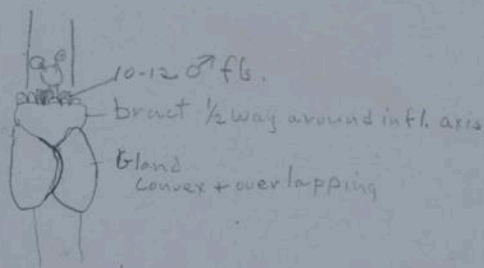 10-12 ♂ fls.
bract 1/2 way around infl. axis
Gland
convex + overlapping